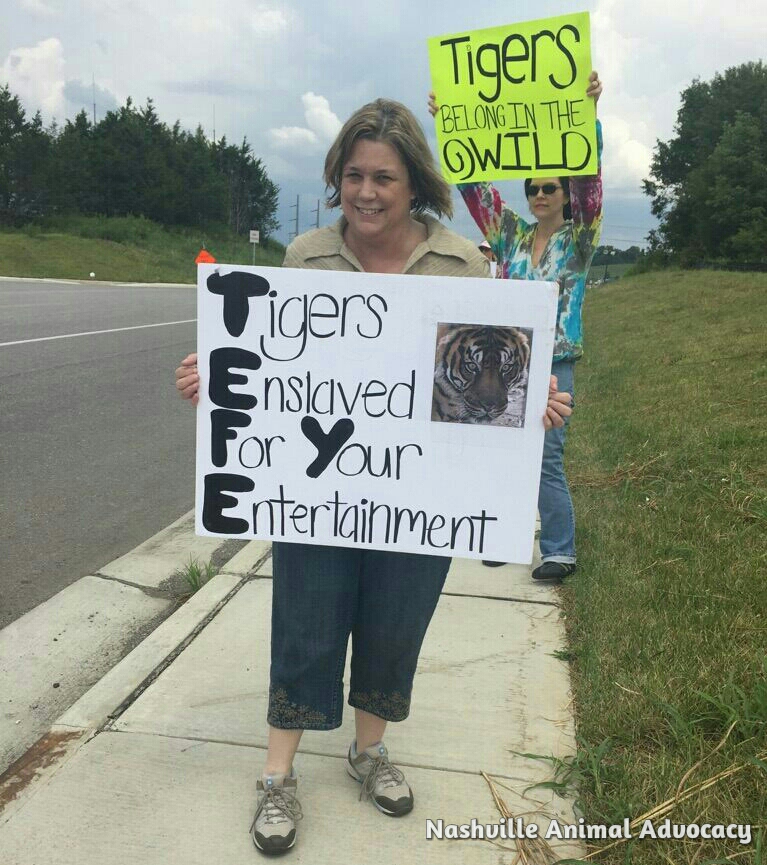 Tigers
BELONG IN THE
WILD
Tigers
Enslaved
For Your
Entertainment
Nashville Animal Advocacy